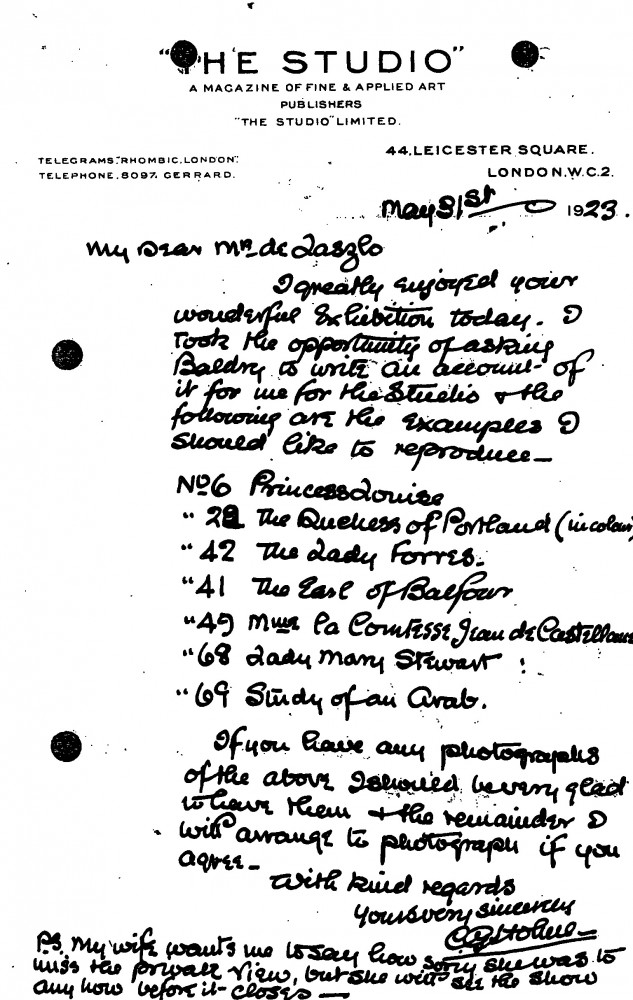 "THE STUDIO"
A MAGAZINE OF FINE & APPLIED ART
PUBLISHERS
"THE STUDIO" LIMITED.
TELEGRAMS: "RHOMBIC, LONDON".
TELEPHONE, 8097. GERRARD.
44, LEICESTER SQUARE.
LONDON, W.C.2.
May 31st 1923.
My Dear Mr. de Laszlo
I greatly enjoyed your
wonderful Exhibition today. I
took the opportunity of asking
Baldry to write an account of
it for me for the Studio & the
following are the examples I
should like to reproduce —
No 6 Princess Louise
" The Duchess of Portland (in colour)
" 42 The Lady Forres.
" 41 The Earl of Balfour
" 45 Mme la Comtesse Jean de Castellane
" 68 Lady Mary Stewart
" 69 Study of an Arab.
If you have any photographs
of the above I should be very glad
to have them & the remainder I
will arrange to photograph if you
agree —
With kind regards
Yours very sincerely
Holme
P.S. My wife wants me to say how sorry she was to
miss the private view, but she will see the show
any how before it closes —